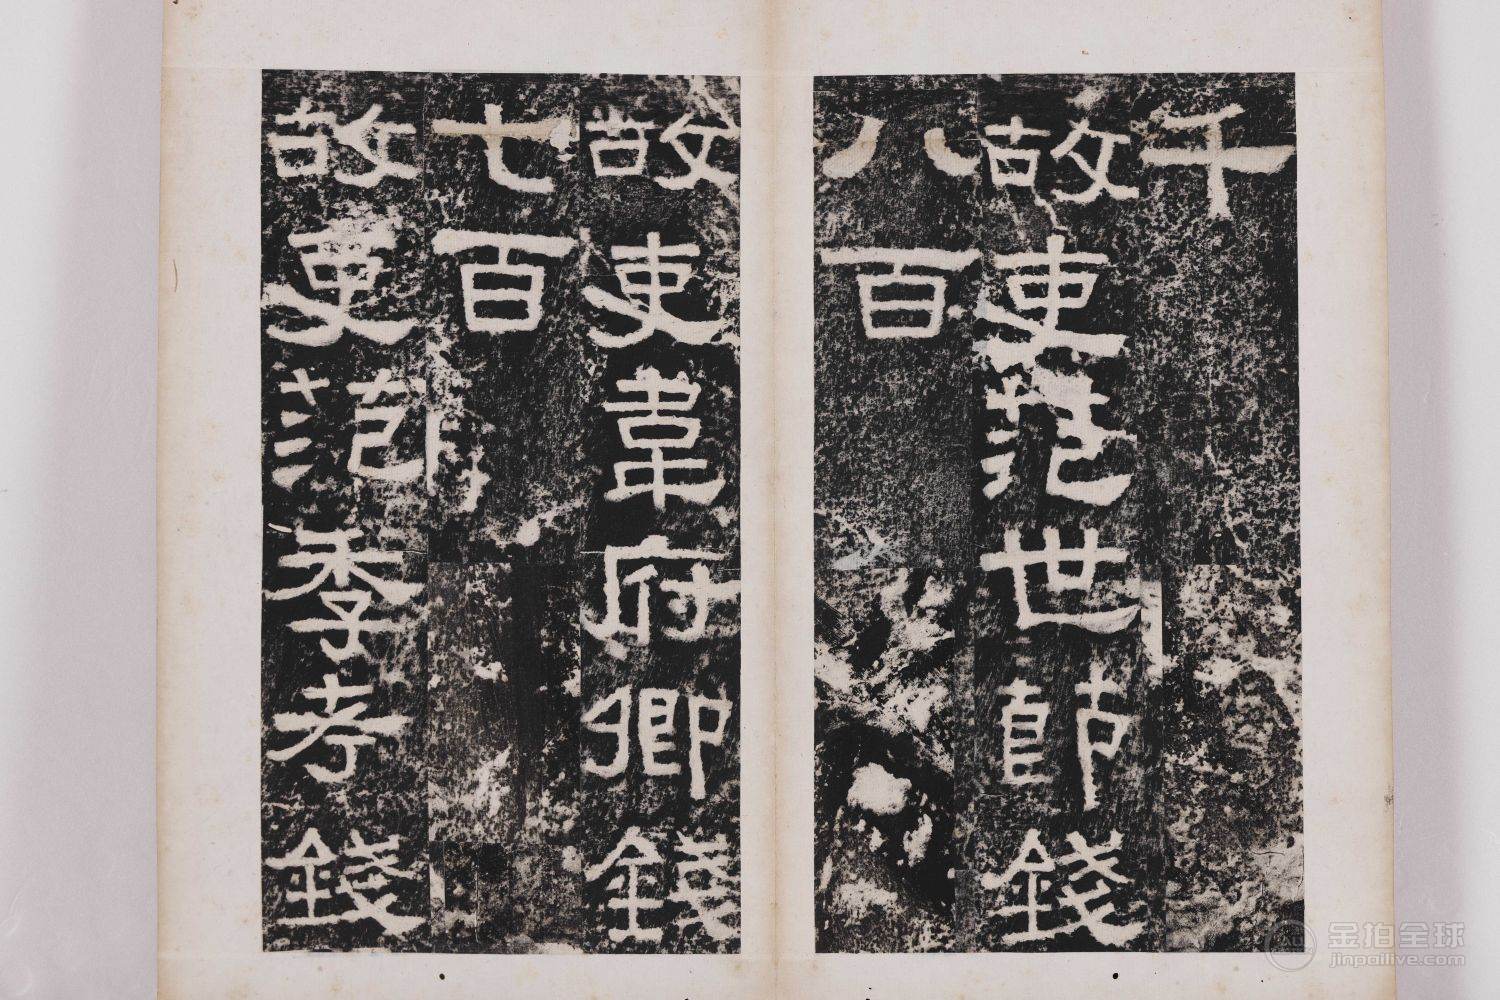 千
故吏范世節錢
八百
故吏韋府卿錢
七百
故吏范季考錢
金拍全球
jinpailive.com